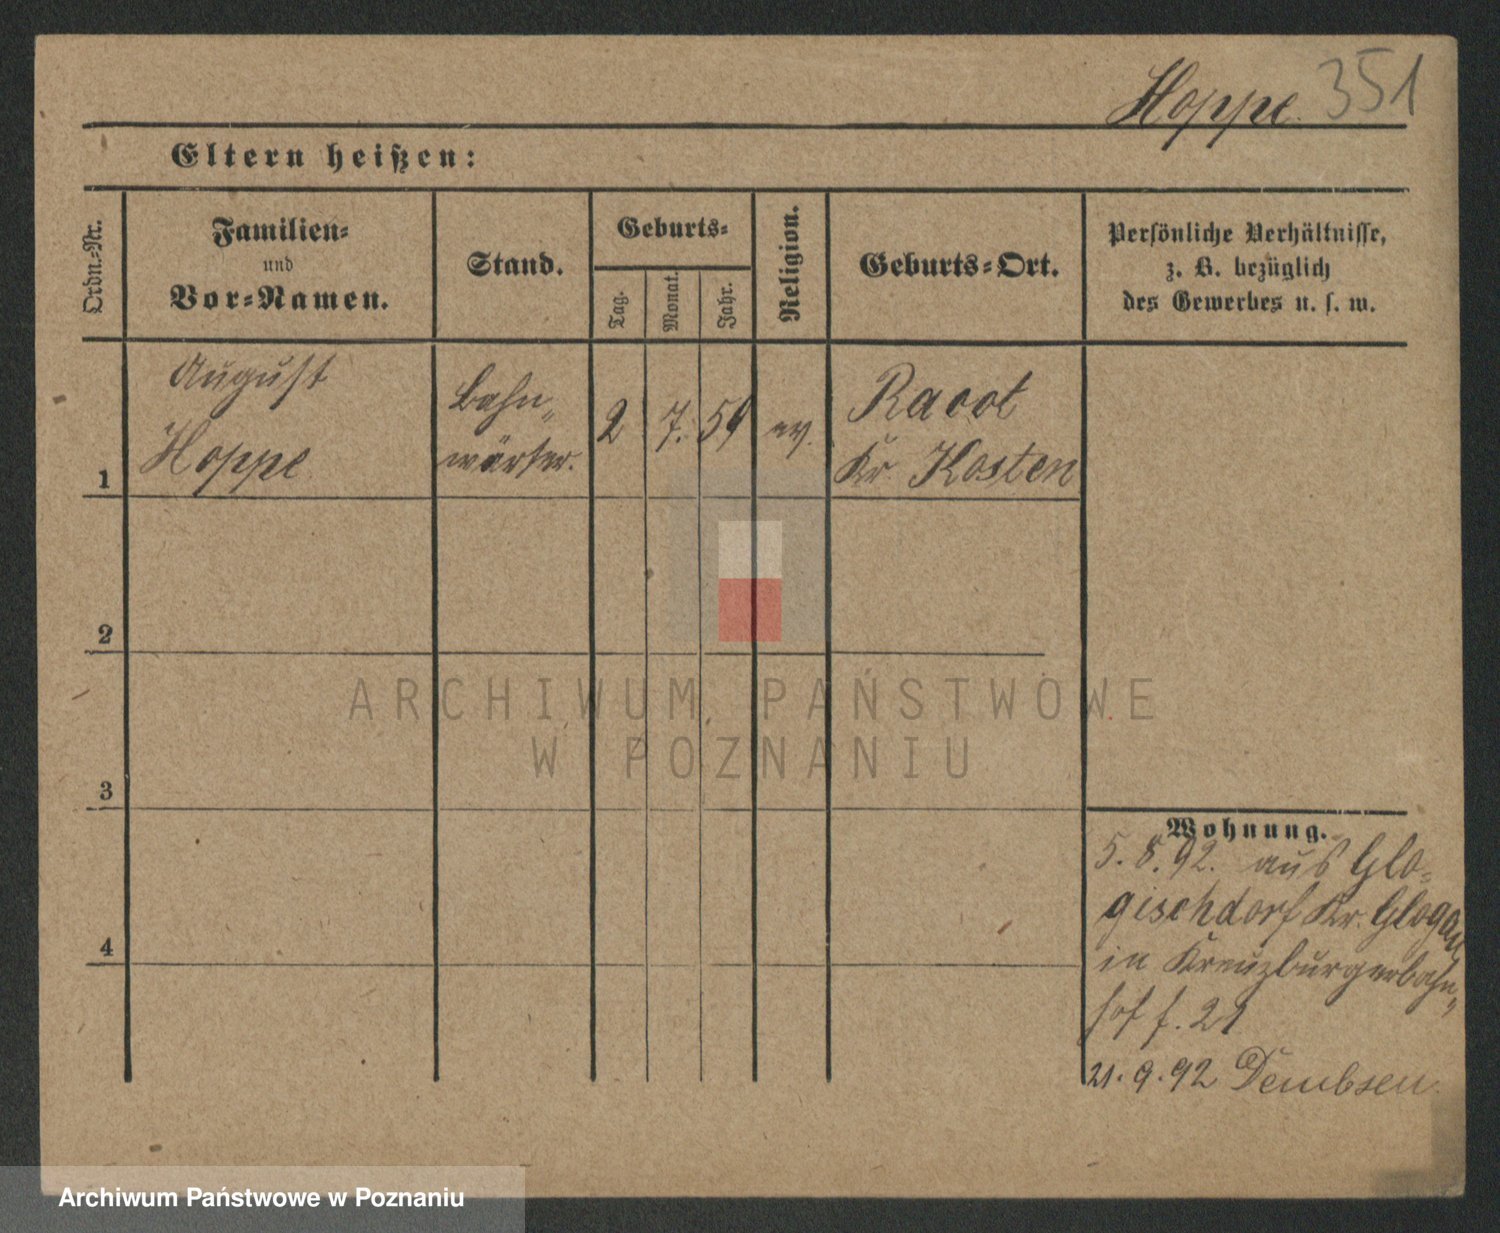 Hoppe. 351
Eltern heißen:
Ordn.-Nr.
Familien-
und
Vor-Namen.
Stand.
Geburts-
Tag.
Monat.
Jahr.
Religion.
Geburts-Ort.
Persönliche Verhältnisse,
z. B. bezüglich
des Gewerbes u. s. w.
1
August
Hoppe
Bahn„
wärter.
2
7.
54
ev.
Racot
Kr. Kosten
2
3
4
Wohnung.
5. 8. 92. aus Glo-
gischdorf Kr. Glogau
in Kreuzburgerbahn„
hof f. 21
21. 9. 92 Dembsen.
ARCHIWUM PAŃSTWOWE
W POZNANIU
Archiwum Państwowe w Poznaniu